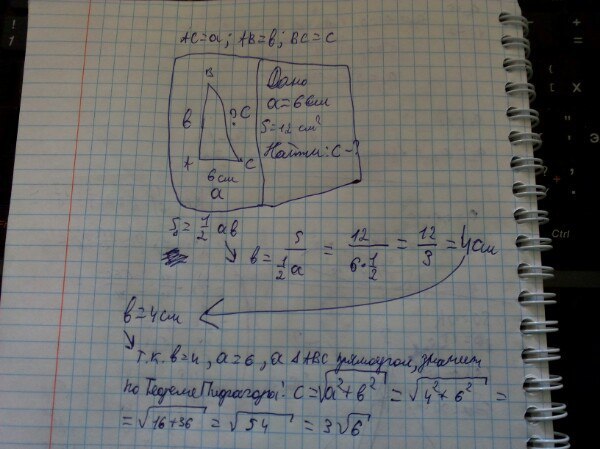 AC=a; AB=в; BC=c
B
в
? C
A
C
6см
a
Дано
a=6см
S=12 см²
Найти: c-?
S=1/2 aв
в= S/(1/2 a) = 12/(6·1/2) = 12/3 =4см
в=4см
т.к. в=4, a=6, а Δ ABC прямоугол, значит
по Теореме Пифагора: c=√(a²+в²) = √(4²+6²) =
= √(16+36) = √54 = 3√6
Ctrl
Э
X